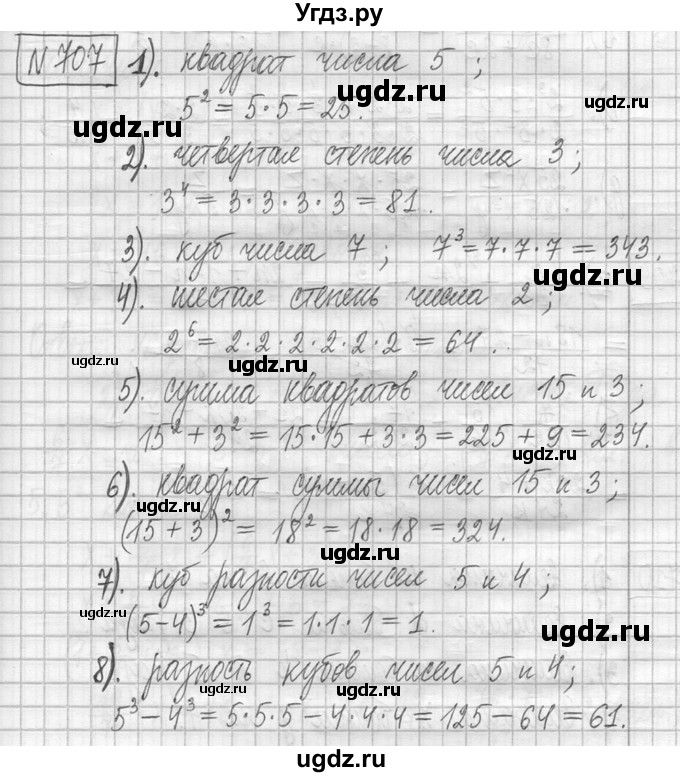 Угдз.ру
N 707 1). квадрат числа 5 ;
5² = 5·5 = 25.
ugdz.ru
ugdz.ru
2). четвертая степень числа 3 ;
ugdz.ru
3⁴ = 3·3·3·3 = 81.
ugdz.ru
3). куб числа 7 ; 7³ = 7·7·7 = 343.
ugdz.ru
ugdz.ru
4). шестая степень числа 2 ;
2⁶ = 2·2·2·2·2·2 = 64.
ugdz.ru
ugdz.ru
5). сумма квадратов чисел 15 и 3 ;
ugdz.ru
15² + 3² = 15·15 + 3·3 = 225 + 9 = 234.
ugdz.ru
6). квадрат суммы чисел 15 и 3 ;
ugdz.ru
(15 + 3)² = 18² = 18·18 = 324.
ugdz.ru
7). куб разности чисел 5 и 4 ;
ugdz.ru
ugdz.ru
(5-4)³ = 1³ = 1·1·1 = 1.
ugdz.ru
8). разность кубов чисел 5 и 4 ;
ugdz.ru
ugdz.ru
5³ - 4³ = 5·5·5 - 4·4·4 = 125 - 64 = 61.
ugdz.ru